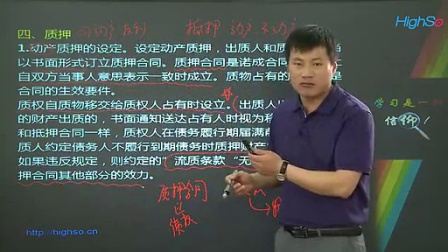 HighSo
四、质押
抵押
1.动产质押的设定。设定动产质押，出质人和质
以书面形式订立质押合同。质押合同是诺成合
自双方当事人意思表示一致时成立。质物占有的
合同的生效要件。
质权自质物移交给质权人占有时设立。（出质人
的财产出质的，书面通知送达占有人时视为移
和抵押合同一样，质权人在债务履行期届满前
质人约定债务人不履行到期债务时质押财产
如果违反规定，则约定的"流质条款"无
押合同其他部分的效力。
学习是一
信仰！
质押合同
债权
http://highso.cn